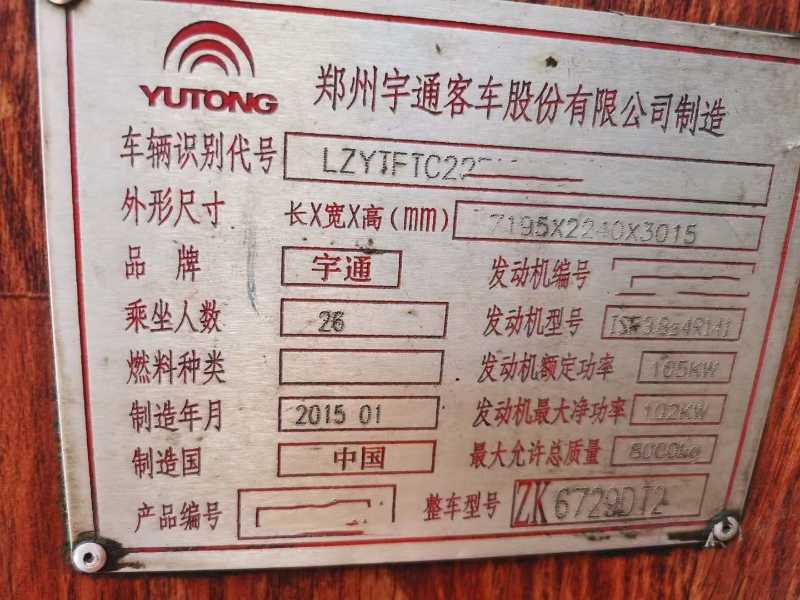 YUTONG
郑州宇通客车股份有限公司制造
车辆识别代号 LZYTFTC22
外形尺寸 长X宽X高(mm) 7195X2240X3015
品牌 宇通 发动机编号
乘坐人数 26 发动机型号 ISF3.8s4R141
燃料种类 发动机额定功率 105KW
制造年月 2015 01 发动机最大净功率 102KW
制造国 中国 最大允许总质量 8000kg
产品编号 整车型号 ZK6729DT2